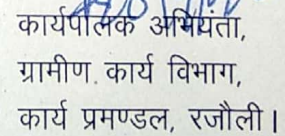 कार्यपालक अभियंता,
ग्रामीण कार्य विभाग,
कार्य प्रमण्डल, रजौली।